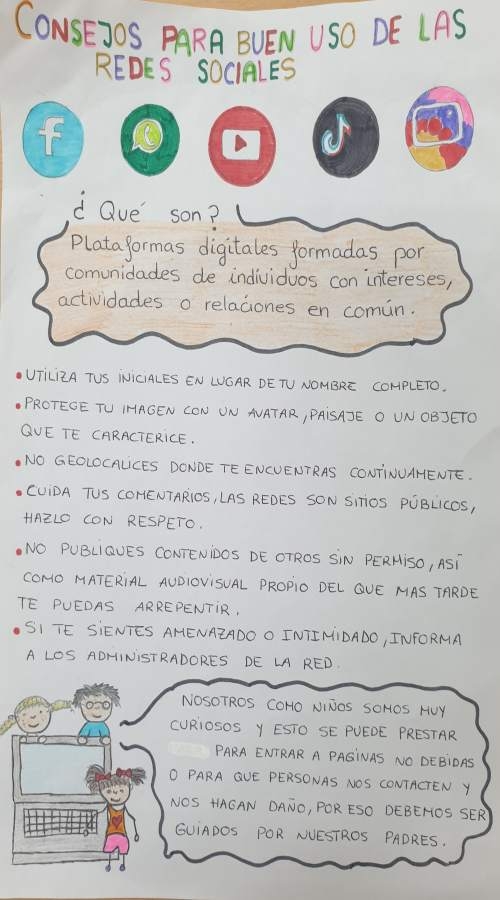 CONSEJOS PARA BUEN USO DE LAS
REDES SOCIALES
f
¿Qué son?
Plataformas digitales formadas por
comunidades de individuos con intereses,
actividades o relaciones en común.
• UTILIZA TUS INICIALES EN LUGAR DE TU NOMBRE COMPLETO.
• PROTEGE TU IMAGEN CON UN AVATAR, PAISAJE O UN OBJETO
QUE TE CARACTERICE.
• NO GEOLOCALICES DONDE TE ENCUENTRAS CONTÍNUAMENTE.
• CUIDA TUS COMENTARIOS, LAS REDES SON SITIOS PÚBLICOS,
HAZLO CON RESPETO.
• NO PUBLIQUES CONTENIDOS DE OTROS SIN PERMISO, ASÍ
COMO MATERIAL AUDIOVISUAL PROPIO DEL QUE MAS TARDE
TE PUEDAS ARREPENTIR.
• SI TE SIENTES AMENAZADO O INTIMIDADO, INFORMA
A LOS ADMINISTRADORES DE LA RED.
NOSOTROS COMO NIÑOS SOMOS MUY
CURIOSOS Y ESTO SE PUEDE PRESTAR
PARA ENTRAR A PAGINAS NO DEBIDAS
O PARA QUE PERSONAS NOS CONTACTEN Y
NOS HAGAN DAÑO, POR ESO DEBEMOS SER
GUIADOS POR NUESTROS PADRES.